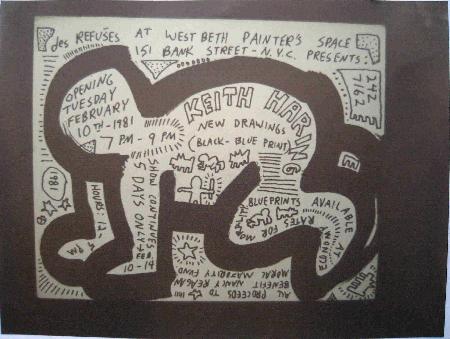 des REFUSÉS AT WESTBETH PAINTER'S SPACE
151 BANK STREET - N.Y.C. PRESENTS:
242
7162
OPENING
TUESDAY
FEBRUARY
10TH - 1981
7 PM - 9 PM
KEITH HARING
NEW DRAWINGS
(BLACK-BLUE PRINT)
1981
HOURS: 12-
SHOW CONTINUES
5 DAYS ONLY FEB.
10-14
BLUEPRINTS AVAILABLE AT
RATES FOR
ALL PROCEEDS TO
BENEFIT NANCY REAGAN
MORAL MAJORITY FUND